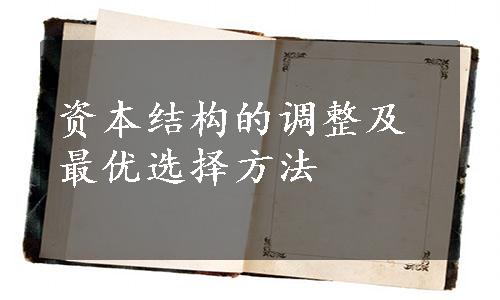 资本结构的调整及
最优选择方法